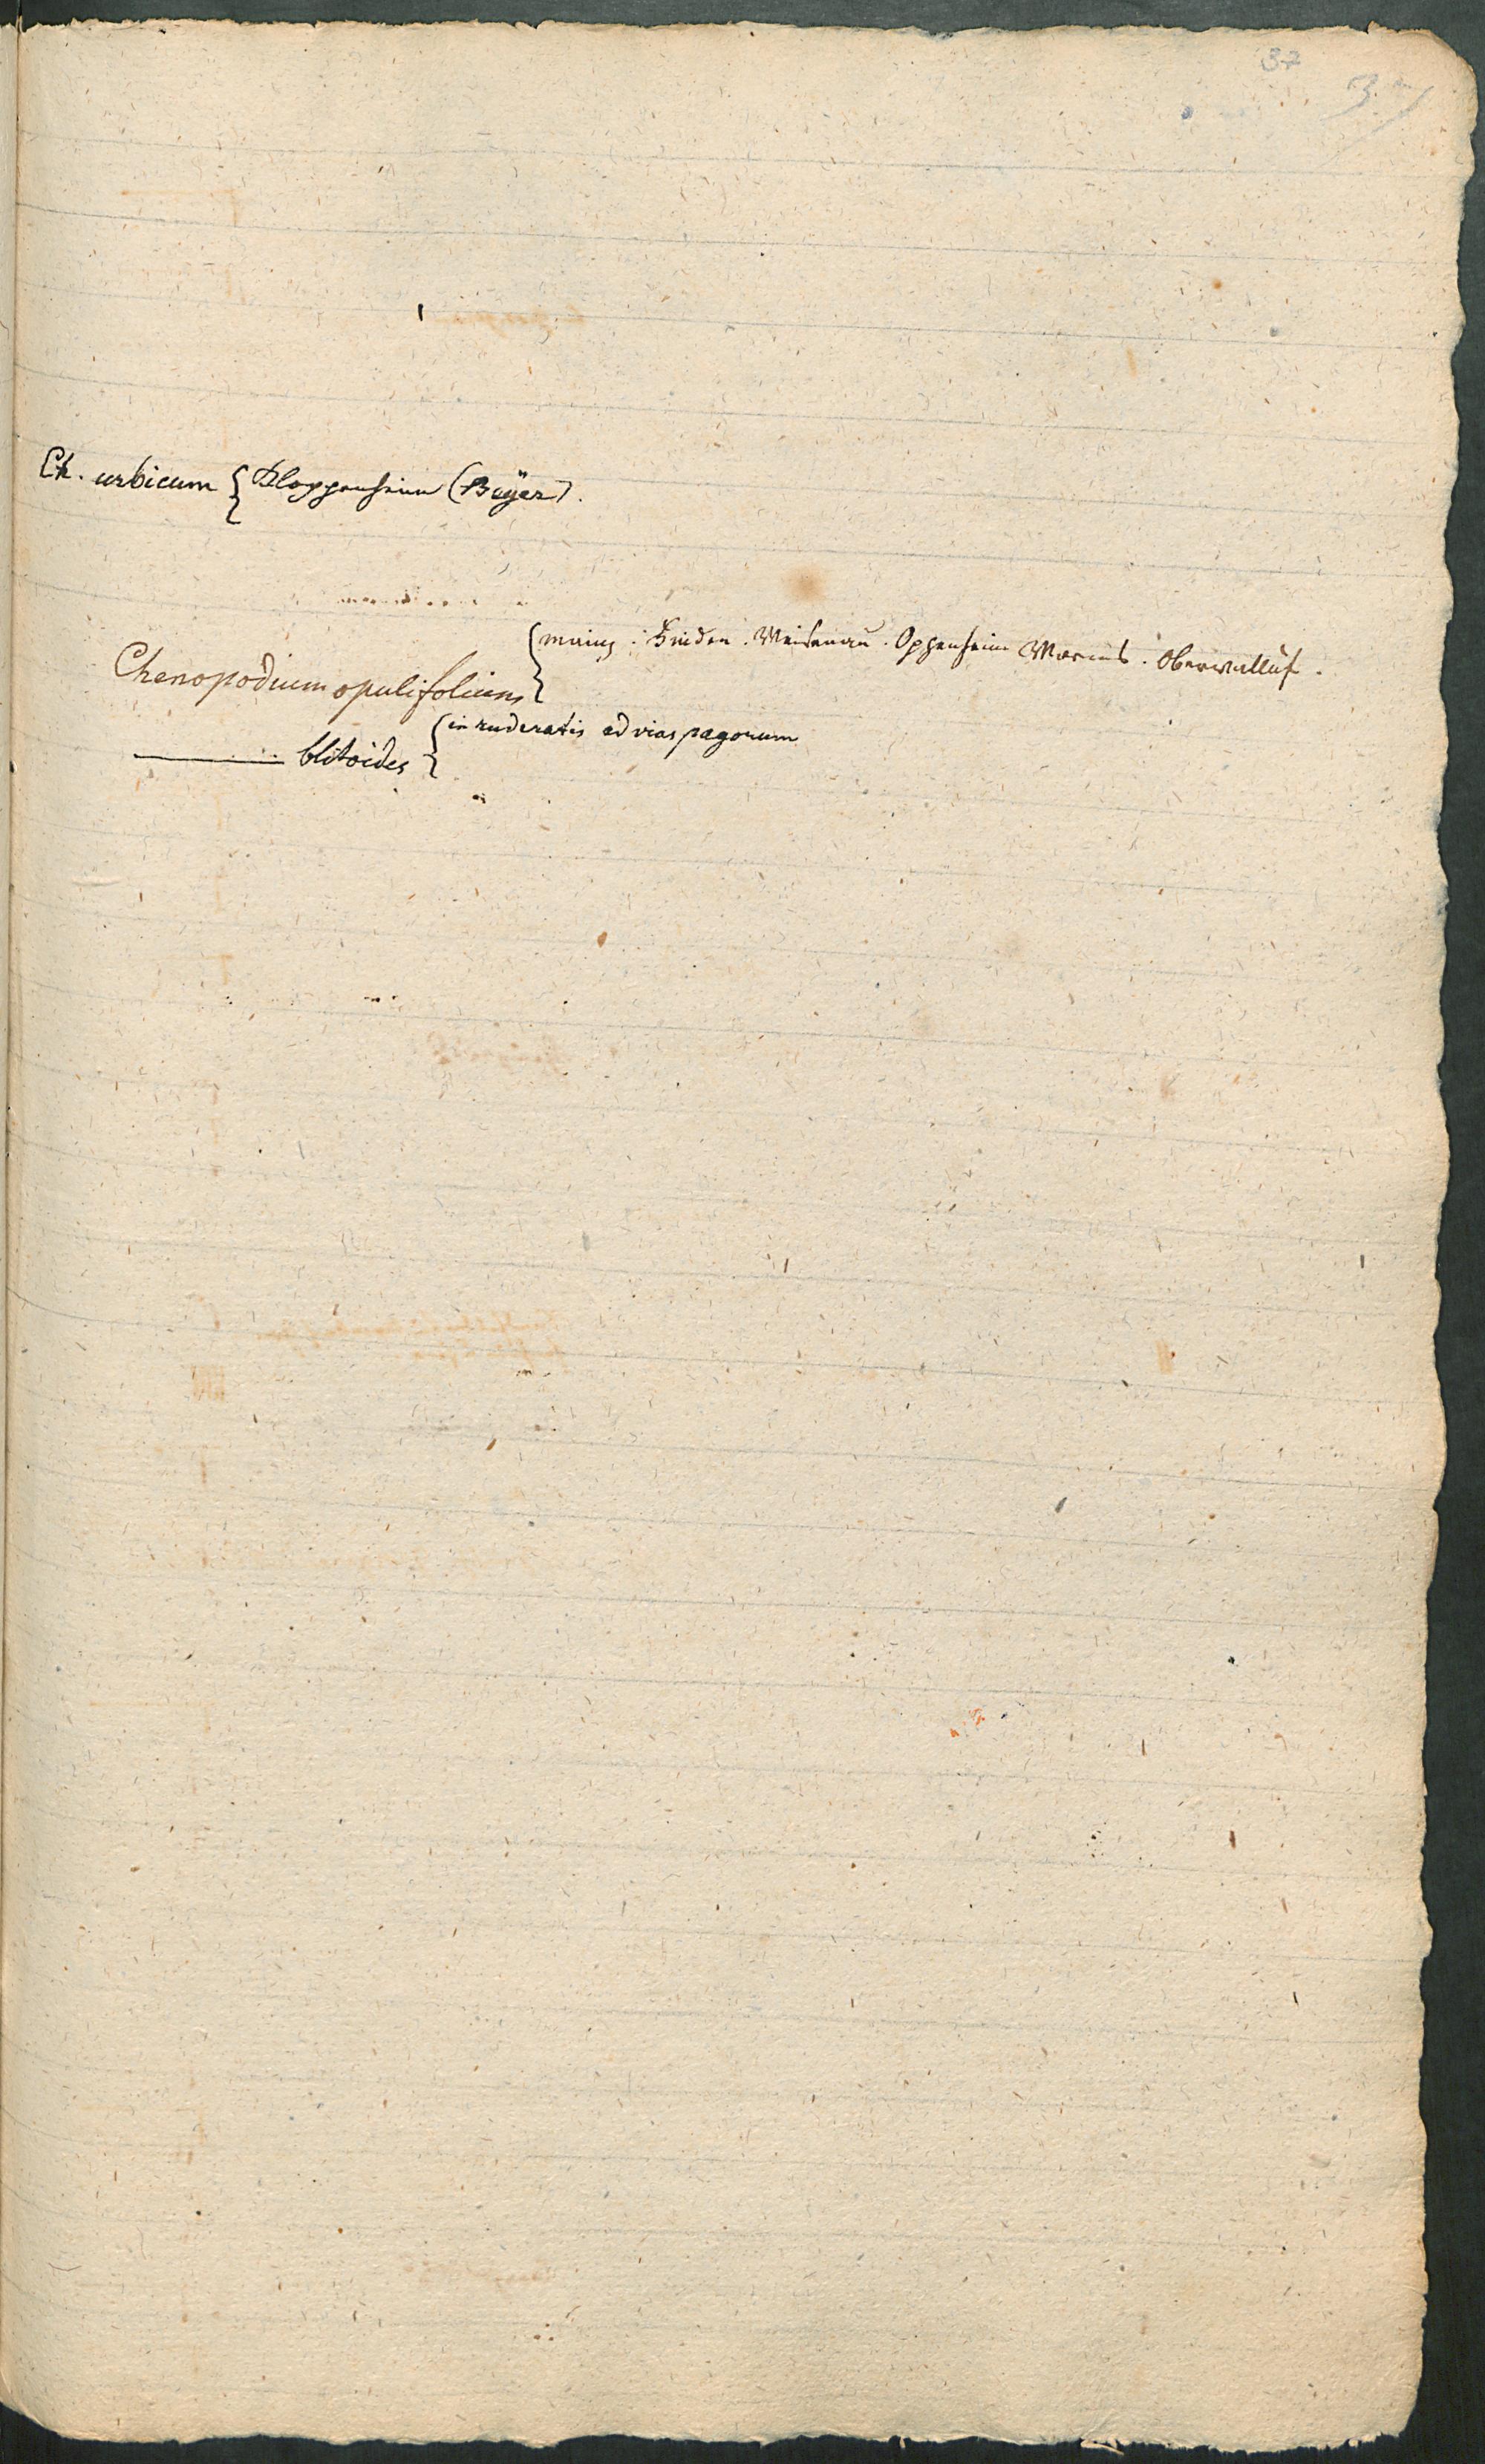 37
37
Ch. urbicum { Kloppenheim (Beÿer).
{ mainz. Linden. Weisenau. Oppenheim Worms. Oberwalluf.
Chenopodium opulifolium
{ in ruderatis ad vias pagorum
——— blitoides